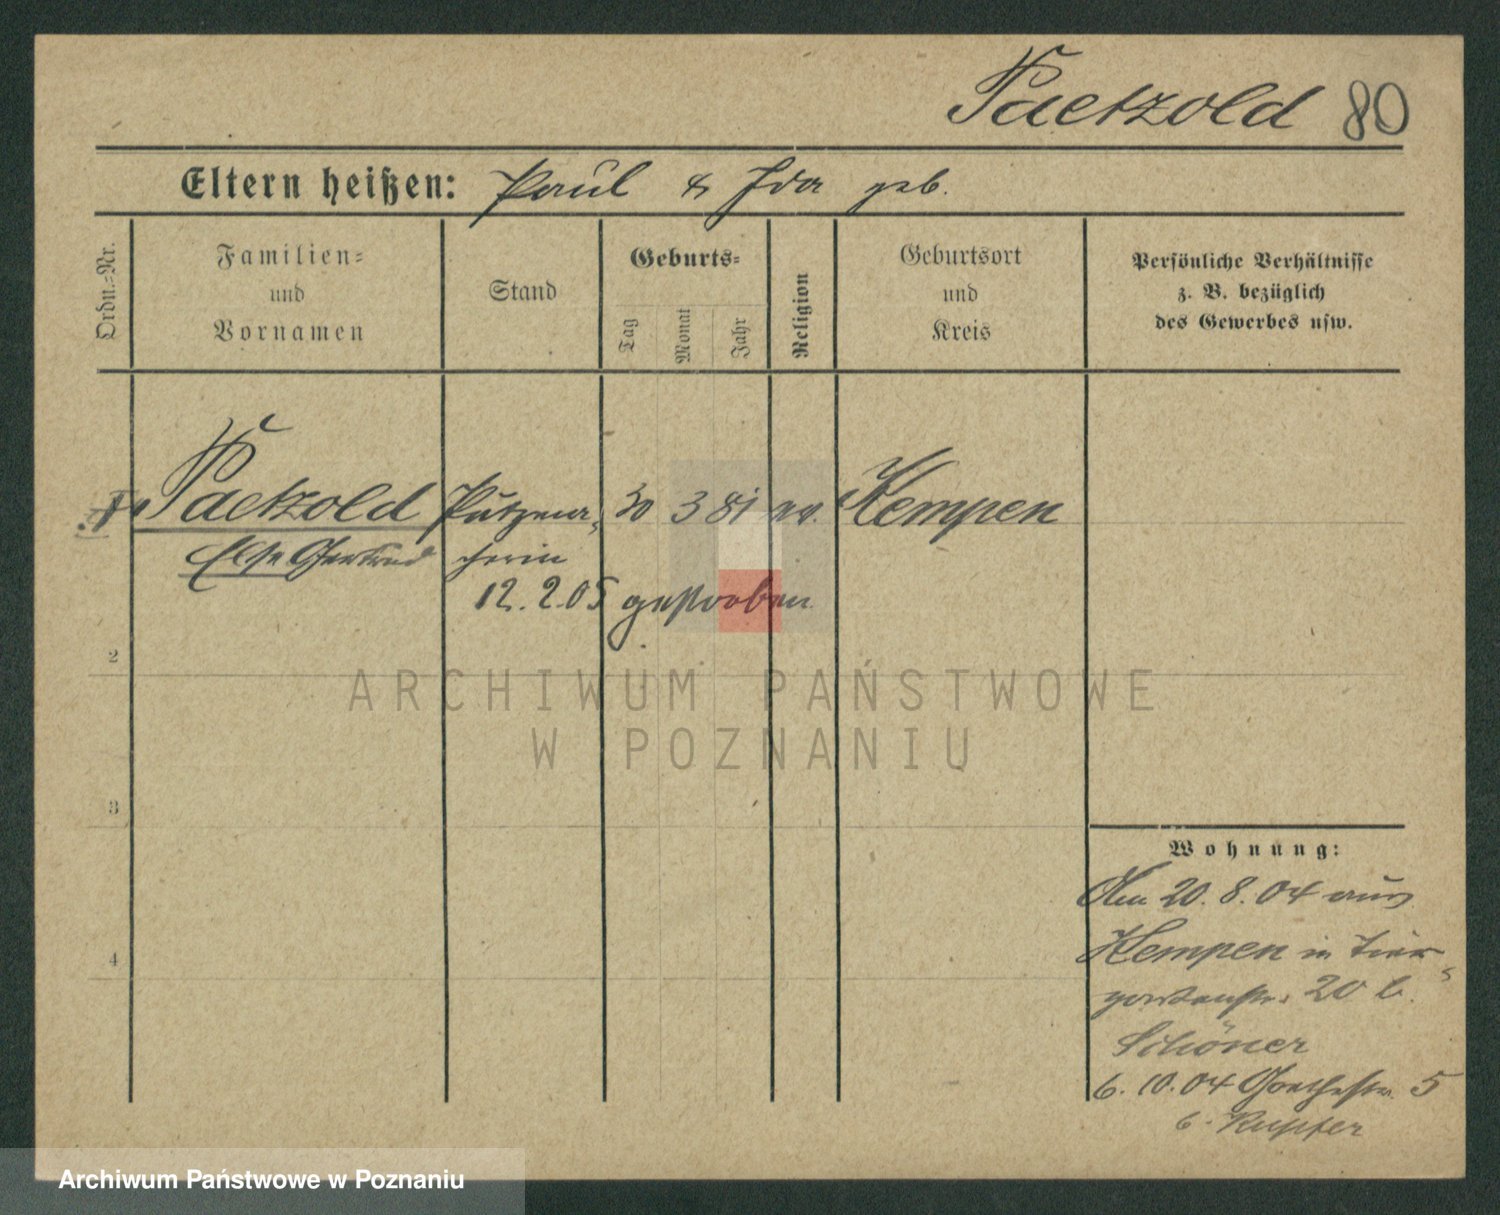 Paetzold 80
Eltern heißen: Paul & Ida geb.
Ordn.-Nr.
Familien-
und
Vornamen
Stand
Geburts-
Tag
Monat
Jahr
Religion
Geburtsort
und
Kreis
Persönliche Verhältnisse
z. B. bezüglich
des Gewerbes usw.
Paetzold Putzma- 30 3 81 ev. Kempen
Else Gertrud cherin
12.2.05 gestorben
2
3
4
Wohnung:
Am 20.8.04 aus
Kempen in Tier-
gartenstr. 20 b.
Schöner
6.10.04 Goethestr. 5
b. Kupfer
ARCHIWUM PAŃSTWOWE
W POZNANIU
Archiwum Państwowe w Poznaniu